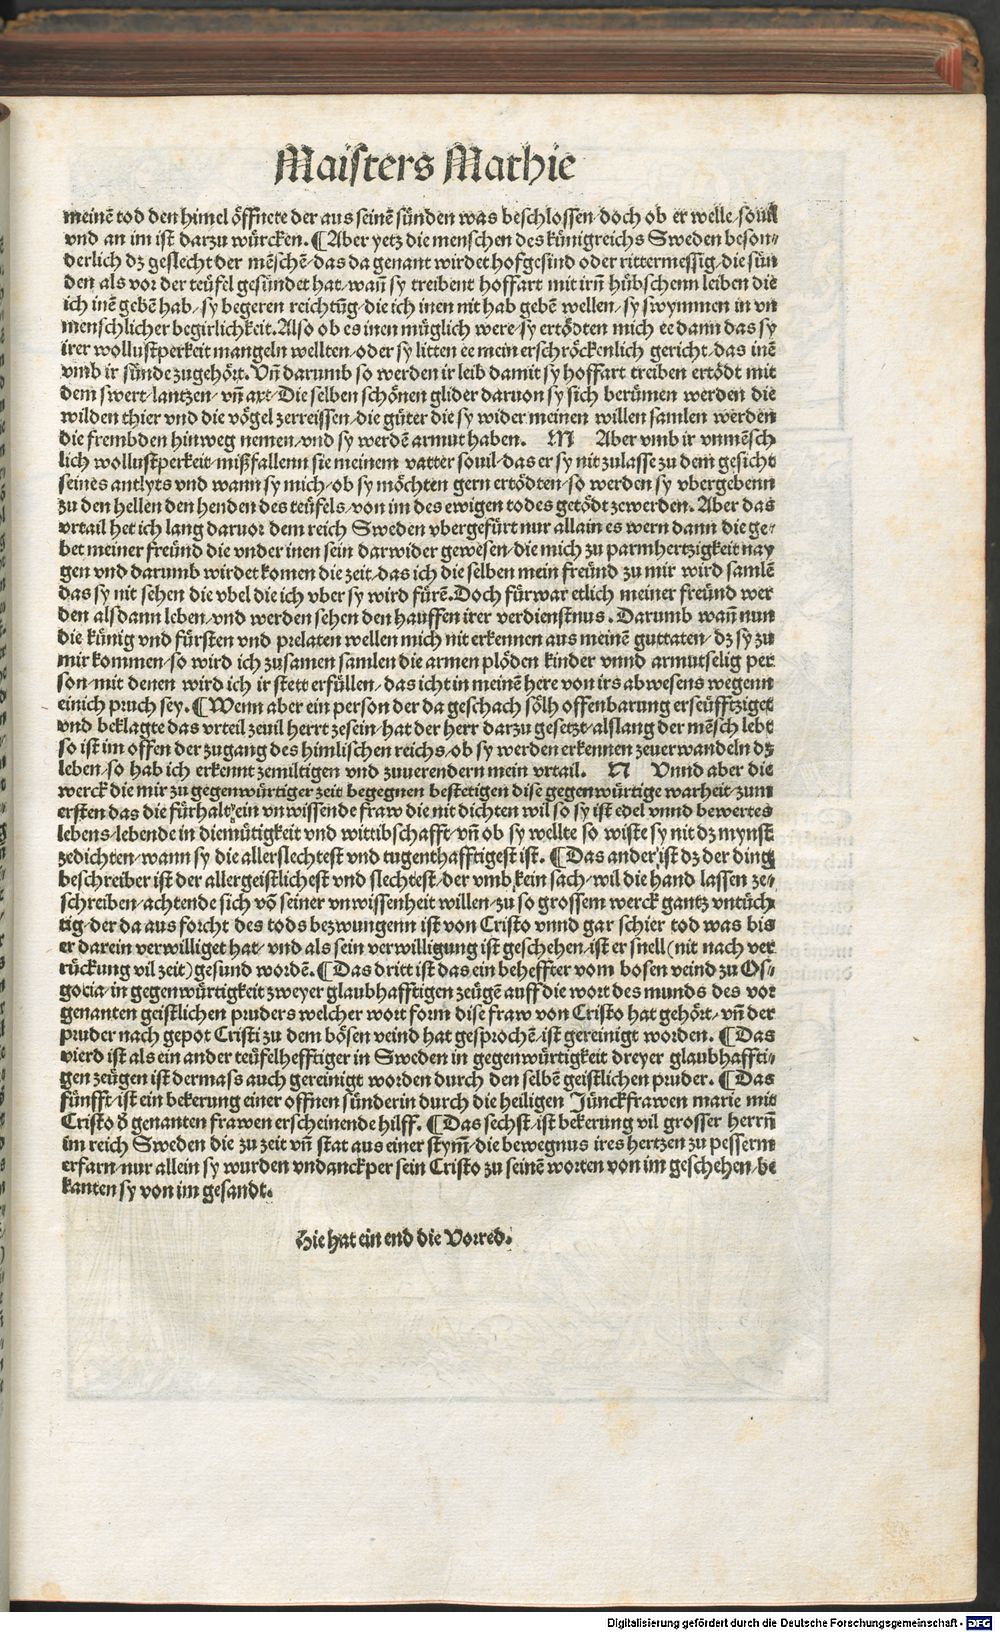 Maisters Mathie
meinẽ tod den himel öffnete der aus seinẽ sünden was beschlossen/doch ob er welle/souil
vnd an im ist darzu würcken. ¶Aber yetz die menschen des künigreichs Sweden beson⸗
derlich dz geslecht der mẽschẽ/das da genant wirdet hofgesind oder rittermessig/die sün
den als vor der teüfel gesündet hat/wañ sy treibent hoffart mit irñ hübschenn leiben die
ich inẽ gebẽ hab/sy begeren reichtũg/die ich inen nit hab gebẽ wellen/sy swymmen in vn
menschlicher begirlichkeit.Also ob es inen müglich were/sy ertödten mich ee dann das sy
irer wollustperkeit mangeln wellten/oder sy litten ee mein erschröckenlich gericht/das inẽ
vmb ir sünde zugehört. Vñ darumb so werden ir leib damit sy hoffart treiben ertödt mit
dem swert/lantzen/vñ axt/Die selben schönen glider daruon sy sich berümen werden die
wilden thier vnd die vögel zerreissen/die güter die sy wider meinen willen samlen werden
die frembden hinweg nemen/vnd sy werdẽ armut haben. M Aber vmb ir vnmẽsch
lich wollustperkeit/mißfallenn sie meinem vatter souil/das er sy nit zulasse zu dem gesicht
seines antlyts vnd wann sy mich/ob sy möchten gern ertödten/so werden sy vbergebenn
zu den hellen den henden des teüfels/von im des ewigen todes getödt zewerden. Aber das
vrtail het ich lang daruor dem reich Sweden vbergefürt nur allain es wern dann die ge⸗
bet meiner freünd die vnder inen sein darwider gewesen/die mich zu parmhertzigkeit nay
gen vnd darumb wirdet komen die zeit/das ich die selben mein freünd zu mir wird samlẽ
das sy nit sehen die vbel die ich vber sy wird fürẽ.Doch fürwar etlich meiner freünd wer
den alsdann leben/vnd werden sehen den hauffen irer verdienstnus. Darumb wañ nun
die künig vnd fürsten vnd prelaten wellen mich nit erkennen aus meinẽ guttaten/dz sy zu
mir kommen/so wird ich zusamen samlen die armen plöden kinder vnnd armutselig per
son/mit denen wird ich ir stett erfüllen/das icht in meinẽ here von irs abwesens wegenn
einich pruch sey. ¶Wenn aber ein person der da geschach sölh offenbarung erseüfftziget
vnd beklagte das vrteil zeuil herrt zesein/hat der herr darzu gesetzt/alslang der mẽsch lebt
so ist im offen der zugang des himlischen reichs/ob sy werden erkennen zeuerwandeln dz
leben/so hab ich erkennt zemiltigen vnd zuuerendern mein vrtail. N Vnnd aber die
werck die mir zu gegenwürtiger zeit begegnen bestetigen dise gegenwürtige warheit/zum
ersten das die fürhalt/ein vnwissende fraw die nit dichten wil so sy ist edel vnnd bewertes
lebens/lebende in diemütigkeit vnd wittibschafft/vñ ob sy wellte so wiste sy nit dz mynst
zedichten/wann sy die allerslechtest vnd tugenthafftigest ist. ¶Das ander ist dz der ding
beschreiber ist der allergeistlichest vnd slechtest/der vmb kein sach/wil die hand lassen ze⸗
schreiben/achtende sich võ seiner vnwissenheit willen/zu so grossem werck gantz vntüch
tig/der da aus forcht des tods bezwungenn ist von Cristo vnnd gar schier tod was bis
er darein verwilliget hat/vnd als sein verwilligung ist geschehen/ist er snell(nit nach ver
rückung vil zeit)gesund wordẽ.¶Das dritt ist das ein beheffter vom bosen veind zu Os⸗
gocia/in gegenwürtigkeit zweyer glaubhafftigen zeügẽ auff die wort des munds des vor
genanten geistlichen pruders welcher wort form dise fraw von Cristo hat gehört/vñ der
pruder nach gepot Cristi zu dem bösen veind hat gesprochẽ/ist gereinigt worden. ¶Das
vierd ist als ein ander teüfelhefftiger in Sweden in gegenwürtigkeit dreyer glaubhaffti⸗
gen zeügen ist dermass auch gereinigt worden durch den selbẽ geistlichen pruder. ¶Das
fünfft/ist ein bekerung einer offnen sünderin durch die heiligen Jünckfrawen marie mit
Cristo d̕ genanten frawen erscheinende hilff. ¶Das sechst/ist bekerung vil grosser herrñ
im reich Sweden die zu zeit vñ stat aus einer stym̃/die bewegnus ires hertzen zu pesserm
erfarn/nur allein sy wurden vndanckper sein Cristo zu seinẽ worten von im geschehen/be
kanten sy von im gesandt.
Hie hat ein end die Vorred.
Digitalisierung gefördert durch die Deutsche Forschungsgemeinschaft - DFG